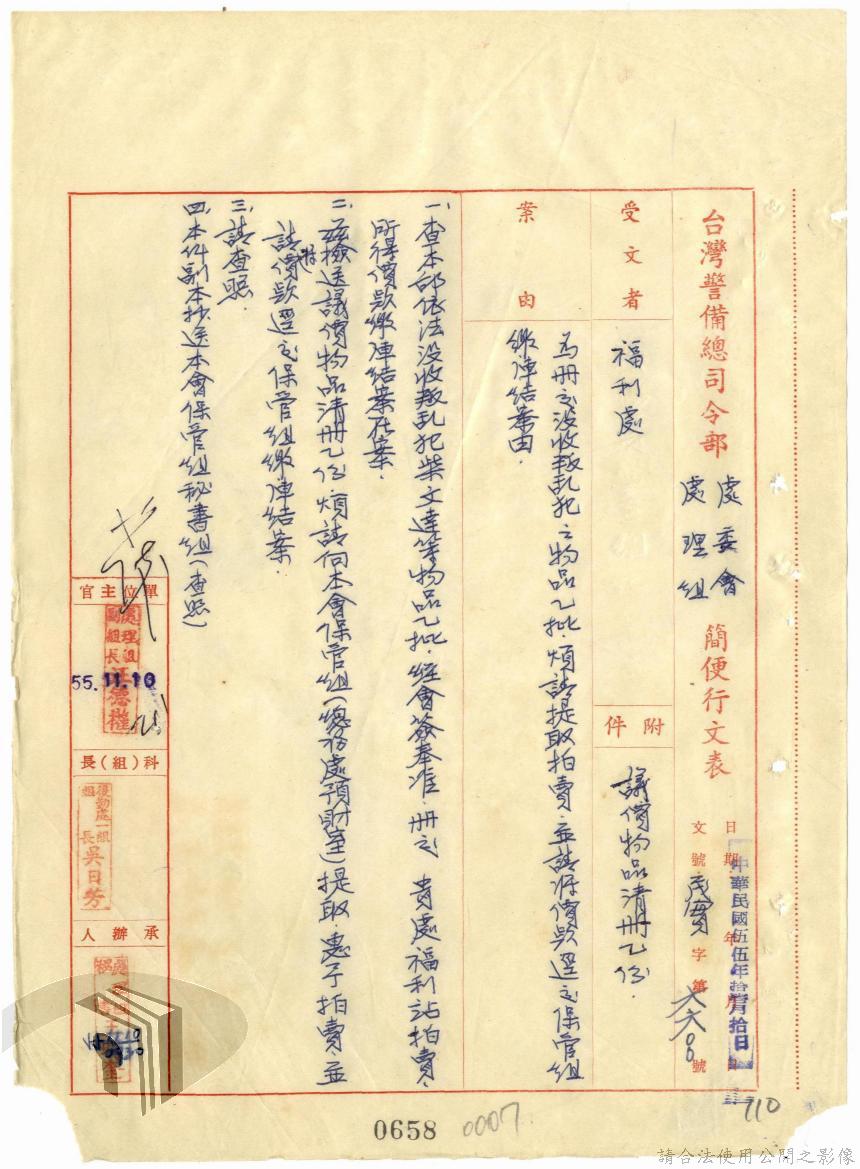 台灣警備總司令部 處委會
處理組 簡便行文表
日期 年 月 日
中華民國伍伍年拾壹月拾日
文號 字第 六六00 號
受文者
福利處
附件
議價物品清冊乙份.
案由
為冊送没收叛乱犯之物品乙批.煩請提取拍賣.並請將價款逕送保管組
繳庫結案由.
一.查本部依法没收叛乱犯柴文達等物品乙批.經會簽奉准.冊送 貴處福利站拍賣.
所得價款繳庫結案在案.
二.茲檢送議價物品清冊乙份.煩請向本會保管組(總務處預財室)提取.惠予拍賣.並
請將價款逕送保管組繳庫結案.
三.請查照.
四.本件副本抄送本會保管組秘書組(查照)
單位主官
處理組
副組長 江德
55.11.10
科(組)長
後勤處一組
組長 吳日芳
承辦人
0930
110
0658 0007
請合法使用公開之影像